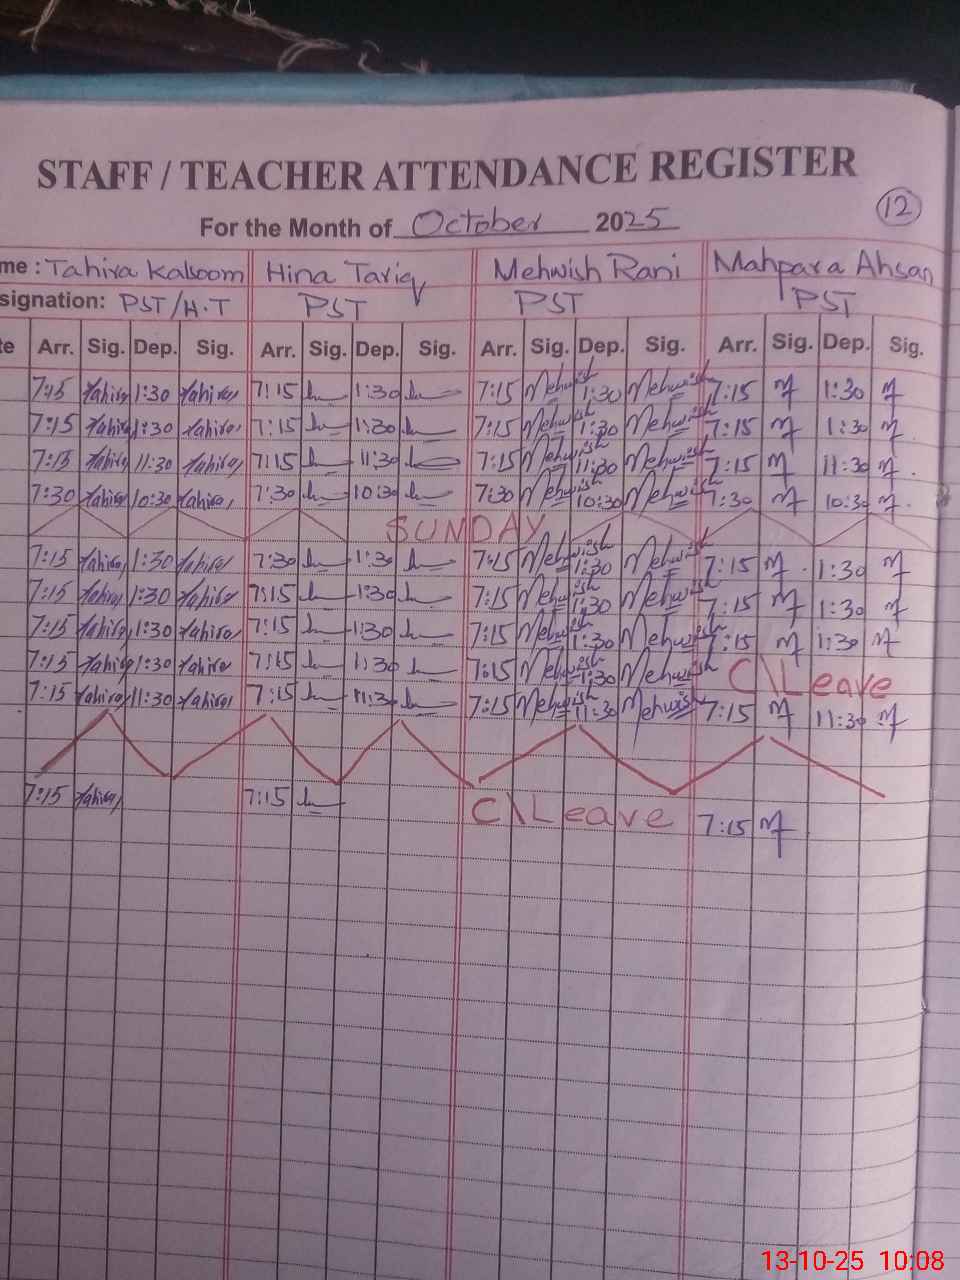 STAFF / TEACHER ATTENDANCE REGISTER
For the Month of October 2025 12
me : Tahira Kalsoom Hina Tariq Mehwish Rani Mahpara Ahsan
signation: PST/H.T PST PST PST
te Arr. Sig. Dep. Sig. Arr. Sig. Dep. Sig. Arr. Sig. Dep. Sig. Arr. Sig. Dep. Sig.
7:15 Tahira 1:30 Tahira 7:15 1:30 7:15 Mehwish 1:30 Mehwish 7:15 M 1:30 M
7:15 Tahira 1:30 Tahira 7:15 1:30 7:15 Mehwish 1:30 Mehwish 7:15 M 1:30 M
7:15 Tahira 11:30 Tahira 7:15 11:30 7:15 Mehwish 11:30 Mehwish 7:15 M 11:30 M
7:30 Tahira 10:30 Tahira 7:30 10:30 7:30 Mehwish 10:30 Mehwish 7:30 M 10:30 M
SUNDAY
7:15 Tahira 1:30 Tahira 7:30 1:30 7:15 Mehwish 1:30 Mehwish 7:15 M 1:30 M
7:15 Tahira 1:30 Tahira 7:15 1:30 7:15 Mehwish 1:30 Mehwish 7:15 M 1:30 M
7:15 Tahira 1:30 Tahira 7:15 1:30 7:15 Mehwish 1:30 Mehwish 7:15 M 1:30 M
7:15 Tahira 1:30 Tahira 7:15 1:30 7:15 Mehwish 1:30 Mehwish C\Leave
7:15 Tahira 11:30 Tahira 7:15 11:30 7:15 Mehwish 11:30 Mehwish 7:15 M 11:30 M
7:15 Tahira 7:15 C\Leave 7:15 M
13-10-25 10:08